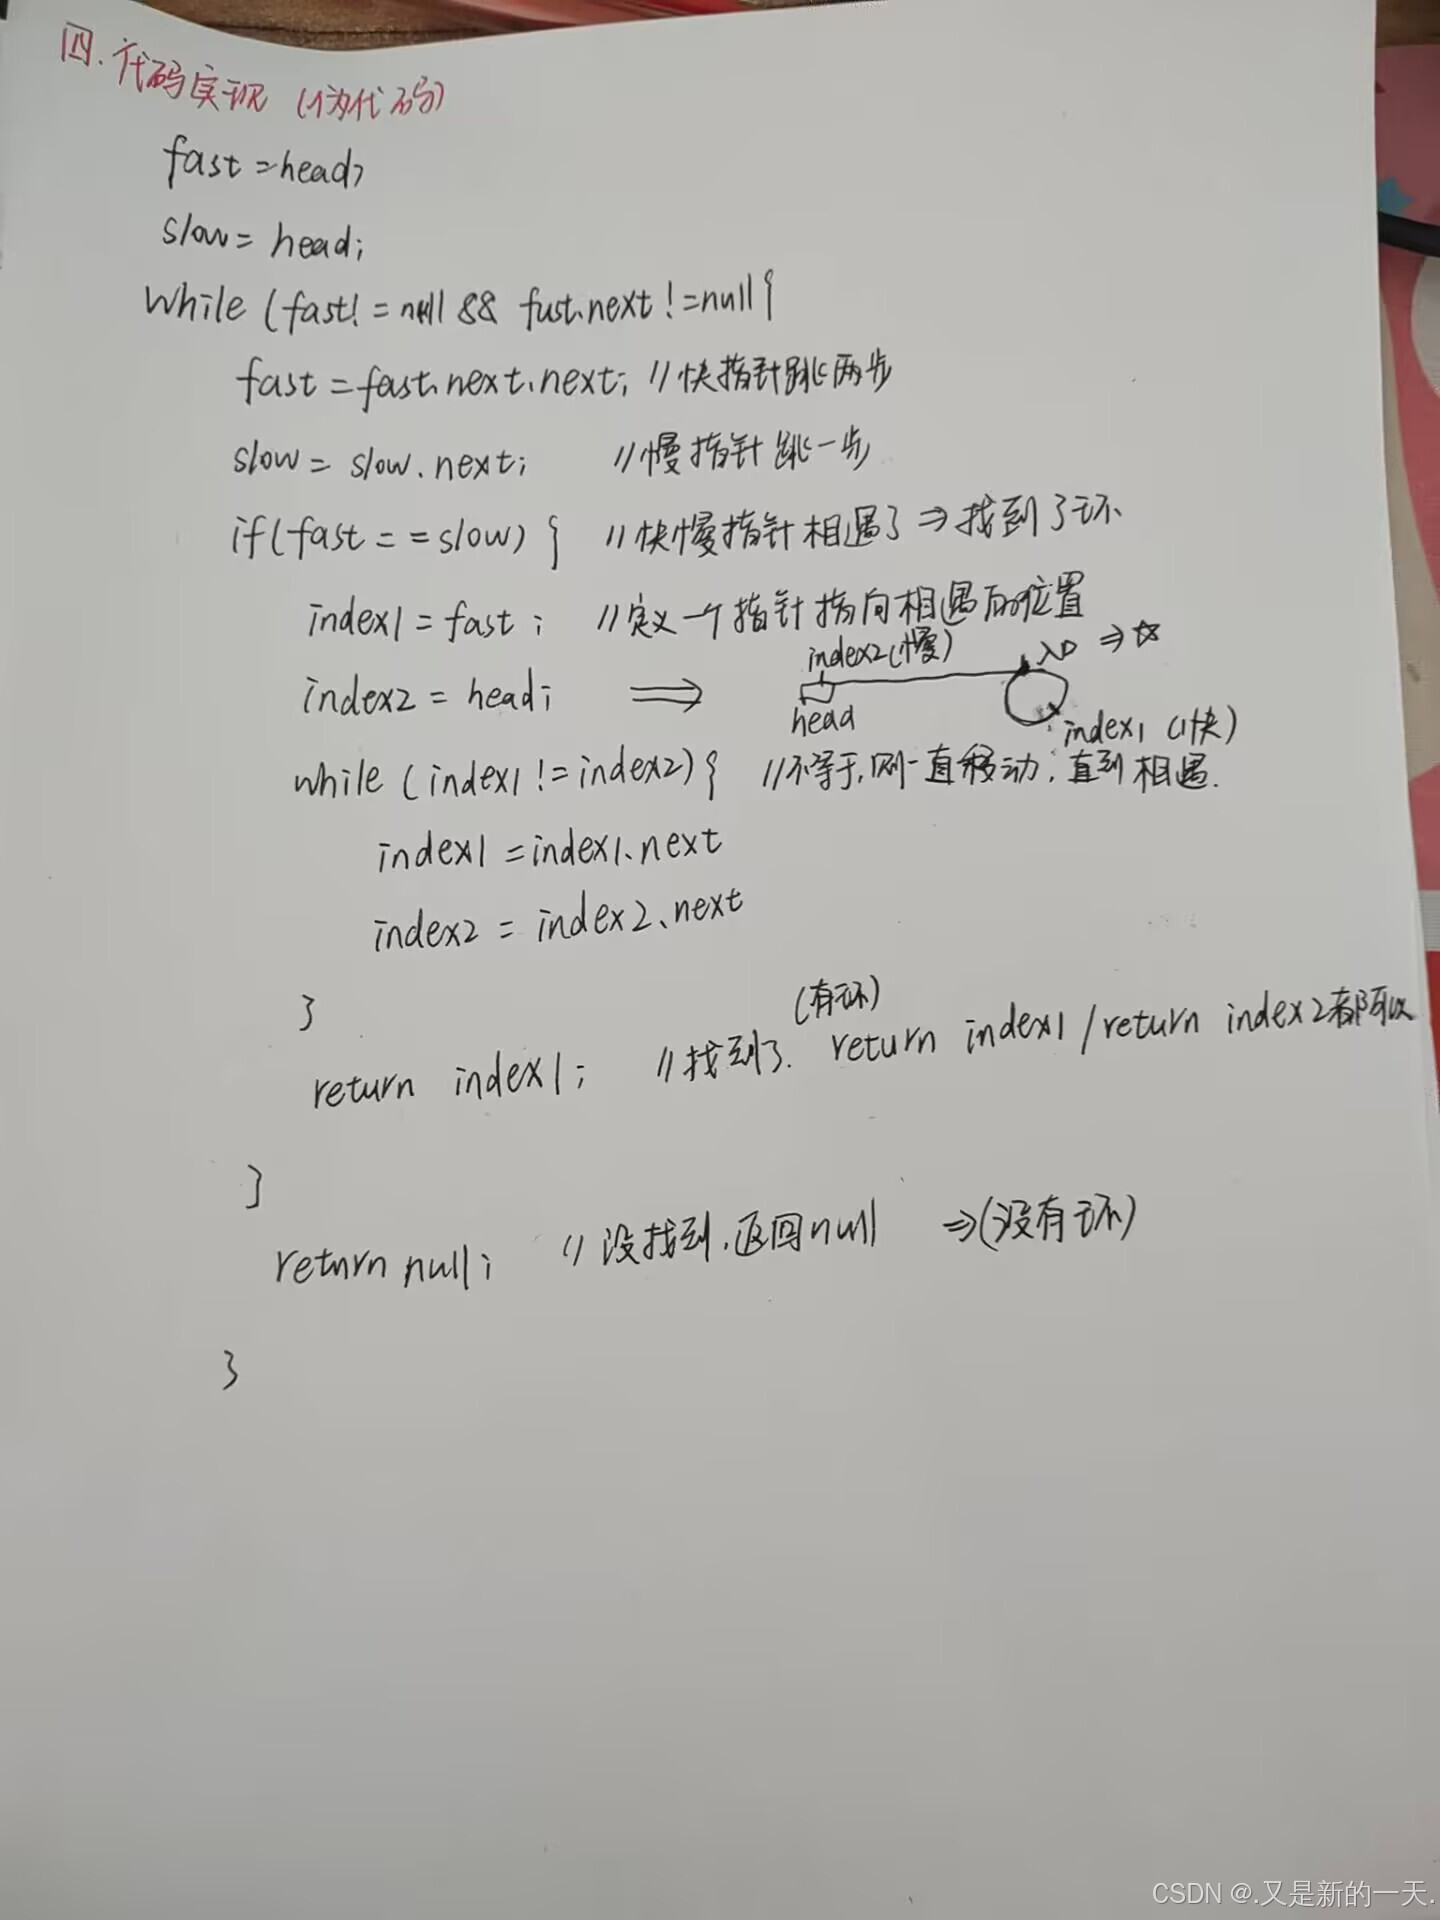 四.代码实现（伪代码）
fast = head;
slow = head;
while (fast! = null && fast.next != null {
fast = fast.next.next; //快指针跳两步
slow = slow.next; //慢指针跳一步
if(fast == slow) { //快慢指针相遇了 ⇒ 找到了环
index1 = fast; //定义一个指针指向相遇的位置
index2(慢) 入口 ⇒ ☆
index2 = head; ⇒
head
index1 (快)
while (index1 != index2) { //不等于,则一直移动,直到相遇.
index1 = index1.next
index2 = index2.next
}
(有环)
return index1; //找到了. return index1 / return index2都可以
}
return null; //没找到,返回null ⇒(没有环)
}
CSDN @.又是新的一天.